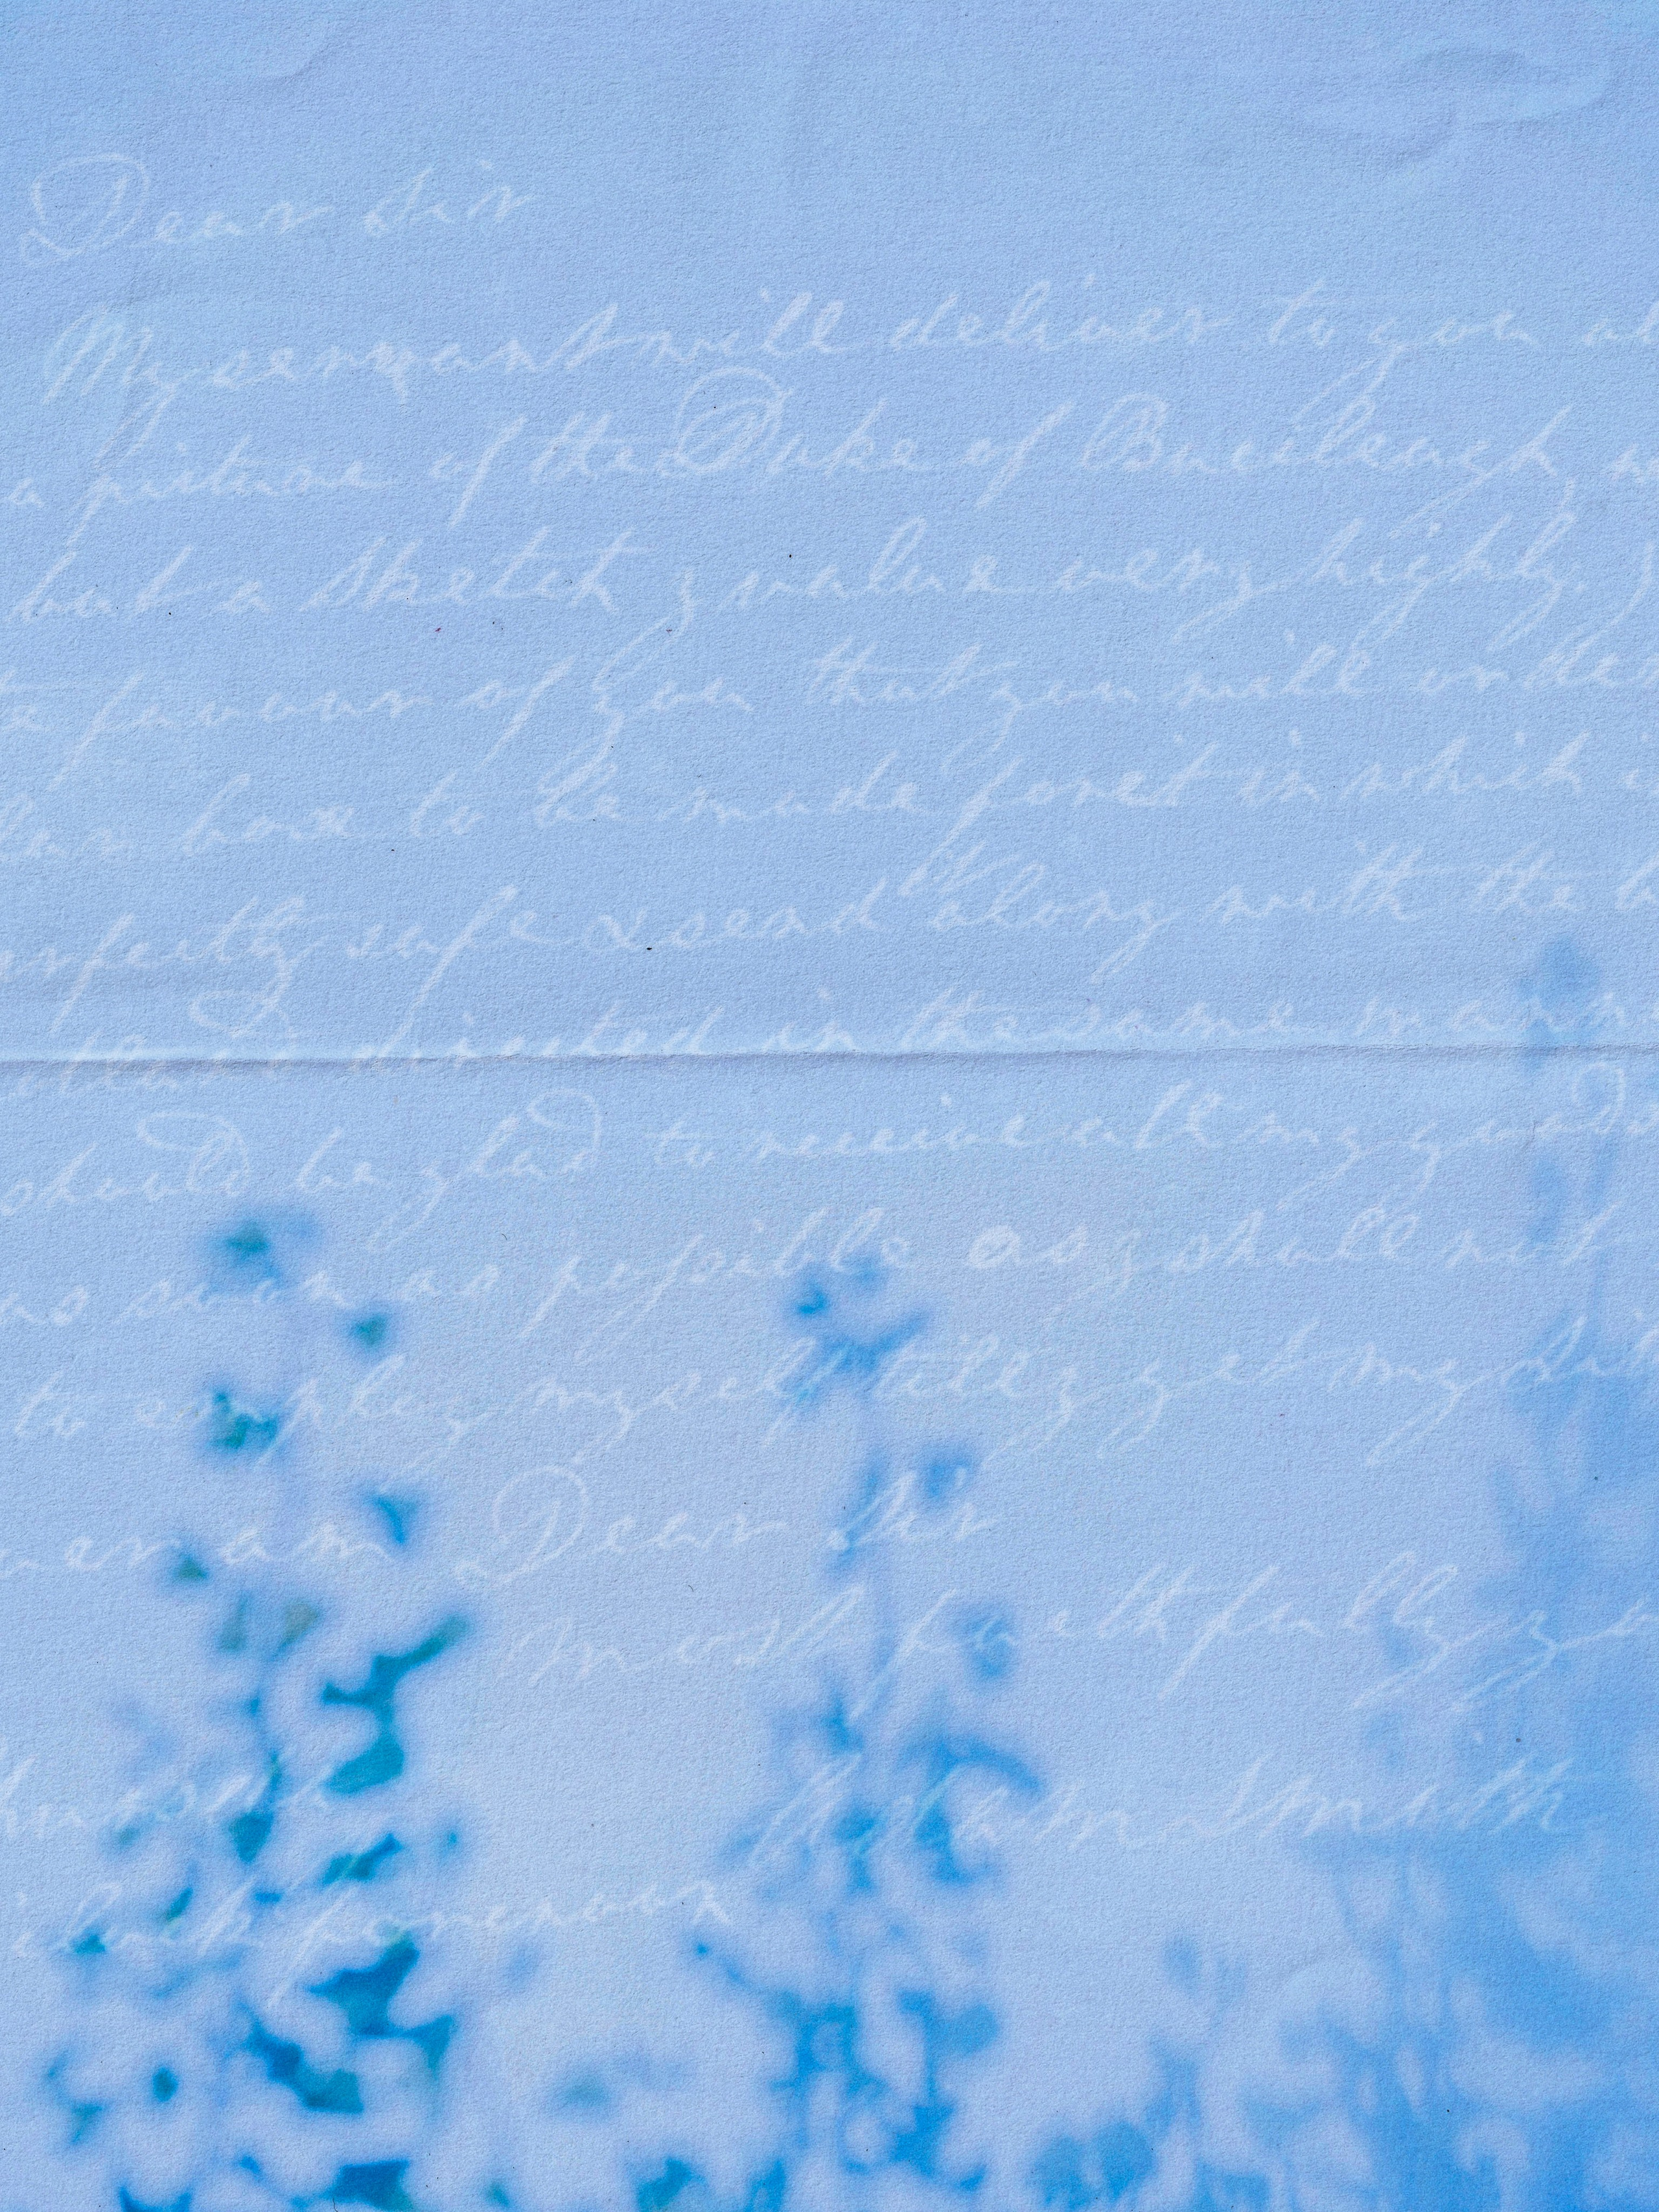 Dear Sir
My servant will deliver to you
a picture of the Duke of Buccleugh
but a Sketch I value very highly. I
favour of you that you will order
box to be made for it in which
safe & send along with the
directed in the same
should be glad to receive all my
as soon as possible as I shall not
to employ myself till I get my
am Dear Sir
most faithfully
Smith
forenoon